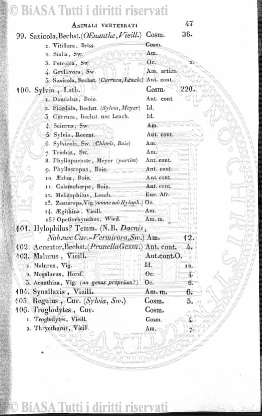 © BiASA Tutti i diritti riservati
ANIMALI VERTEBRATI 47
99. Saxicola, Bechst. (OEnanthe, Vieill.) Cosm. 36.
1. Vitiflora, Briss. Cosm.
2. Sialia, Sw. Am.
3. Petroica, Sw. Or. 2.
4. Gryllivora, Sw. Am. artica
5. Saxicola, Bechst. (Curruca, Leach) Ant. cont.
100. Sylvia, Lath. Cosm. 220.
1. Dandalus, Boie. Ant. cont
2. Ficedula, Bechst. (Sylvia, Meyer) Id.
3. Curruca, Bechst. nec Leach. Id.
4. Seiurus, Sw. Am.
5. Sylvia, Recent. Ant. cont.
6. Sylvicola, Sw. (Chloris, Boie) Am.
7. Trichas, Sw. Am.
8. Phyllopneuste, Meyer (partim) Ant. cont.
9. Phylloscopus, Boie. Ant. cont.
10. Boie. Ant. cont.
11. Calamoherpe, Boie. Ant. cont.
12. Melizophilus, Leach. Eur. Afr.
13. Zosterops, Vig.
14. Ægithina, Vieill. Am.
15? Opetiorhynchos, Wied. Am. m.
101. Hylophilus? Temm. (N.B. Dacnis,
Nob. nec Cuv.-Vermivora, Sw.) Am. 12.
102. Accentor, Bechst. (Prunella Gesn.) Ant. cont. 4.
103. Malurus, Vieill. Ant.cont.O.
1. Malurus, Vig. Id. 12.
2. Megalurus, Horsf. Or. 4.
3. Acanthiza, Vig. (an genus proprium?) Or. 6.
104. Synallaxis, Vieill. Am. m. 6.
105. Regulus, Cuv. (Sylvia, Sw.) Cosm. 5.
106. Troglodytes, Cuv. Cosm.
1. Troglodytes, Vieill. Cosm. 4.
2. Thryothorus, Vieill. Am. 7.
© BiASA Tutti i diritti riservati